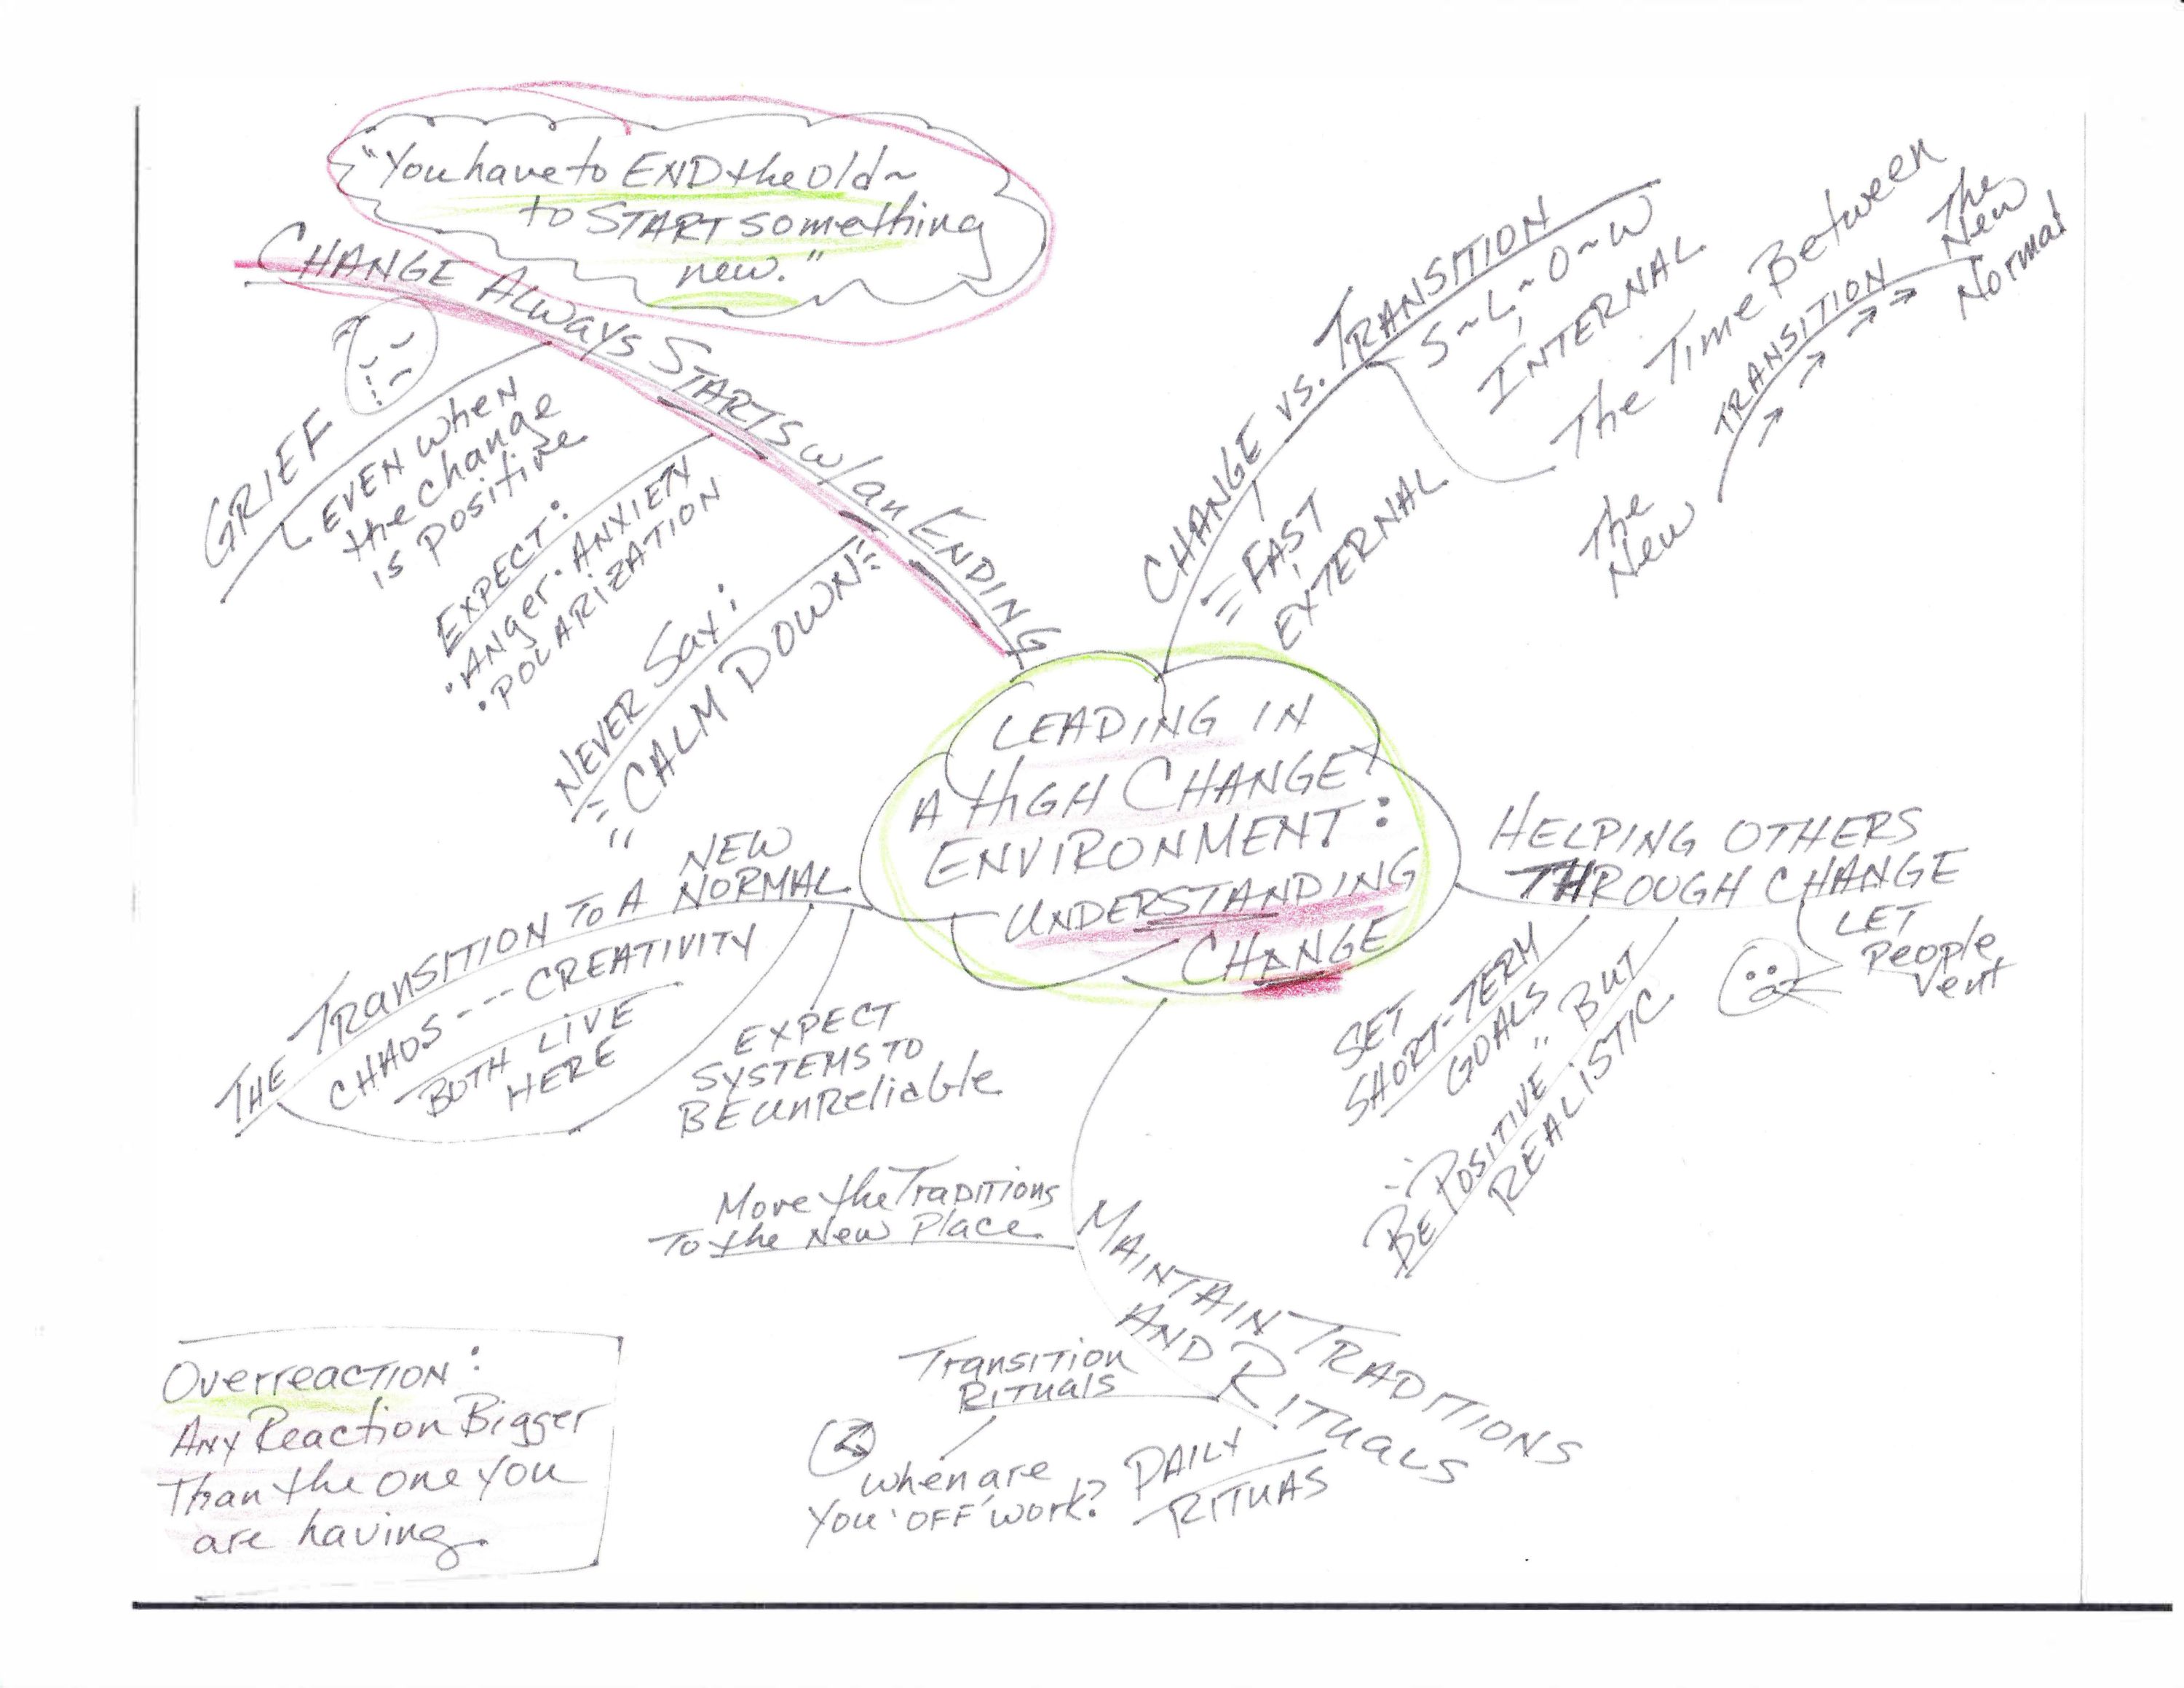 "You have to END the old~
to START something
new."
CHANGE Always STARTS w/an ENDING
GRIEF
EVEN when
the change
is positive
EXPECT:
·Anger·ANXIETY
·POLARIZATION
NEVER Say:
"CALM DOWN"
CHANGE vs. TRANSITION
FAST
EXTERNAL
S~L~O~W
INTERNAL
The Time Between
The
New
TRANSITION
The
New
Normal
LEADING IN
A HIGH CHANGE
ENVIRONMENT:
UNDERSTANDING
CHANGE
THE TRANSITION TO A NEW
NORMAL
CHAOS---CREATIVITY
BOTH LIVE
HERE
EXPECT
SYSTEMS TO
BE unReliable
HELPING OTHERS
THROUGH CHANGE
LET
People
Vent
SET
SHORT-TERM
GOALS
BE "POSITIVE" BUT
REALISTIC
MAINTAIN TRADITIONS
AND RITUALS
Move the Traditions
To the New Place
Transition
RITUALS
when are
You 'OFF' work?
DAILY
RITUAS
Overreaction:
Any Reaction Bigger
Than the one you
are having.